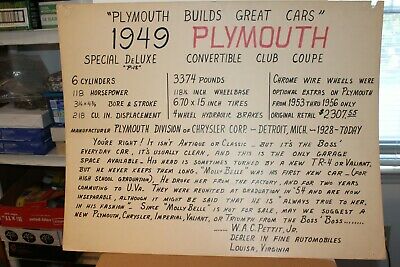 "PLYMOUTH BUILDS GREAT CARS"
1949 PLYMOUTH
SPECIAL DELUXE CONVERTIBLE CLUB COUPE
"P-18"
6 CYLINDERS
118 HORSEPOWER
3¼ x 4⅜ BORE & STROKE
218 CU. IN. DISPLACEMENT
3374 POUNDS
118½ INCH WHEELBASE
670 x 15 INCH TIRES
4 WHEEL HYDRAULIC BRAKES
CHROME WIRE WHEELS WERE
OPTIONAL EXTRAS ON PLYMOUTH
FROM 1953 THRO 1956 ONLY
ORIGINAL RETAIL $2307.55
MANUFACTURER PLYMOUTH DIVISION OF CHRYSLER CORP. - DETROIT, MICH. - 1928-TODAY
YOU'RE RIGHT! IT ISN'T ANTIQUE OR CLASSIC - BUT IT'S THE BOSS'
EVERYDAY CAR, IT'S USUALLY CLEAN, AND THIS IS THE ONLY GARAGE
SPACE AVAILABLE - HIS HEAD IS SOMETIMES TURNED BY A NEW TR-4 OR VALIANT,
BUT HE NEVER KEEPS THEM LONG, "MOLLY BELLE" WAS HIS FIRST NEW CAR - (FOR
HIGH SCHOOL GRADUATION), HE DROVE HER FROM THE FACTORY, AND FOR TWO YEARS
COMMUTING TO U.VA. THEY WERE REUNITED AT GRADUATION IN '54 AND ARE NOW
INSEPARABLE, ALTHOUGH IT MIGHT BE SAID THAT HE IS "ALWAYS TRUE TO HER,
IN HIS FASHION" - SINCE "MOLLY BELLE" IS NOT FOR SALE, MAY WE SUGGEST A
NEW PLYMOUTH, CHRYSLER, IMPERIAL, VALIANT, OR TRIUMPH FROM THE BOSS' BOSS........
...... W.A.C. PETTIT, JR.
DEALER IN FINE AUTOMOBILES
LOUISA, VIRGINIA